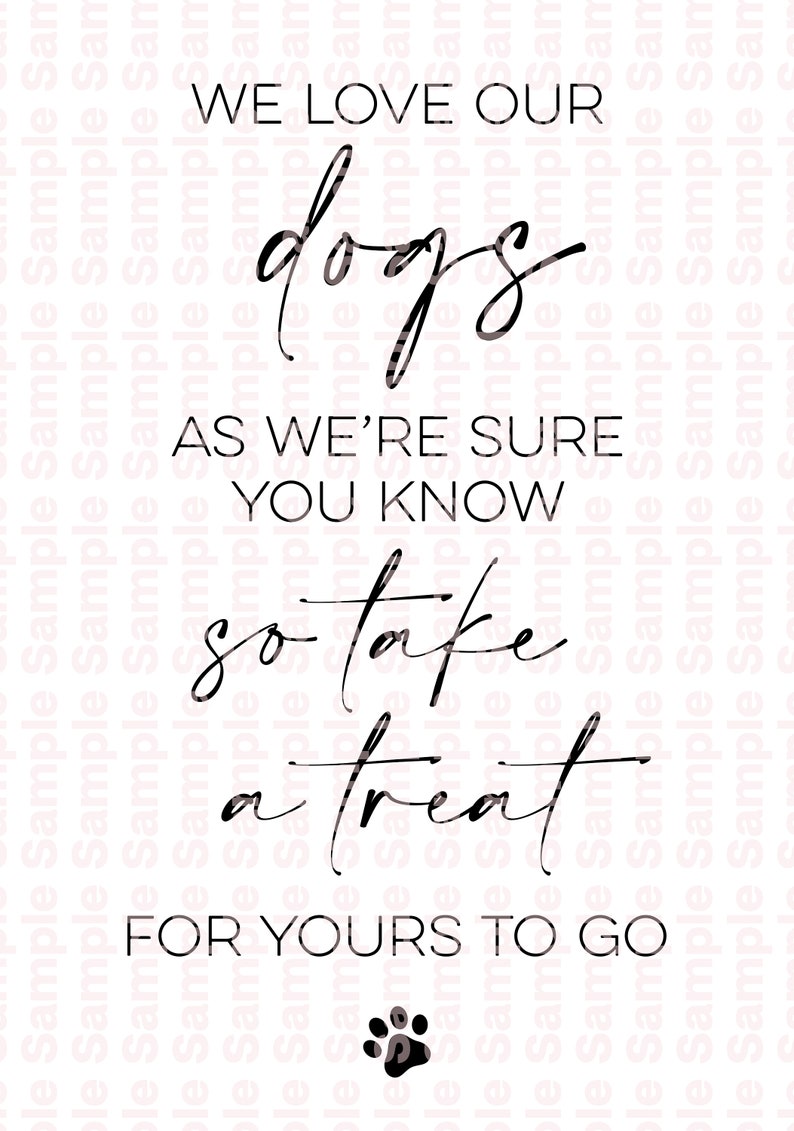 WE LOVE OUR
dogs
AS WE'RE SURE
YOU KNOW
so take
a treat
FOR YOURS TO GO
Sample